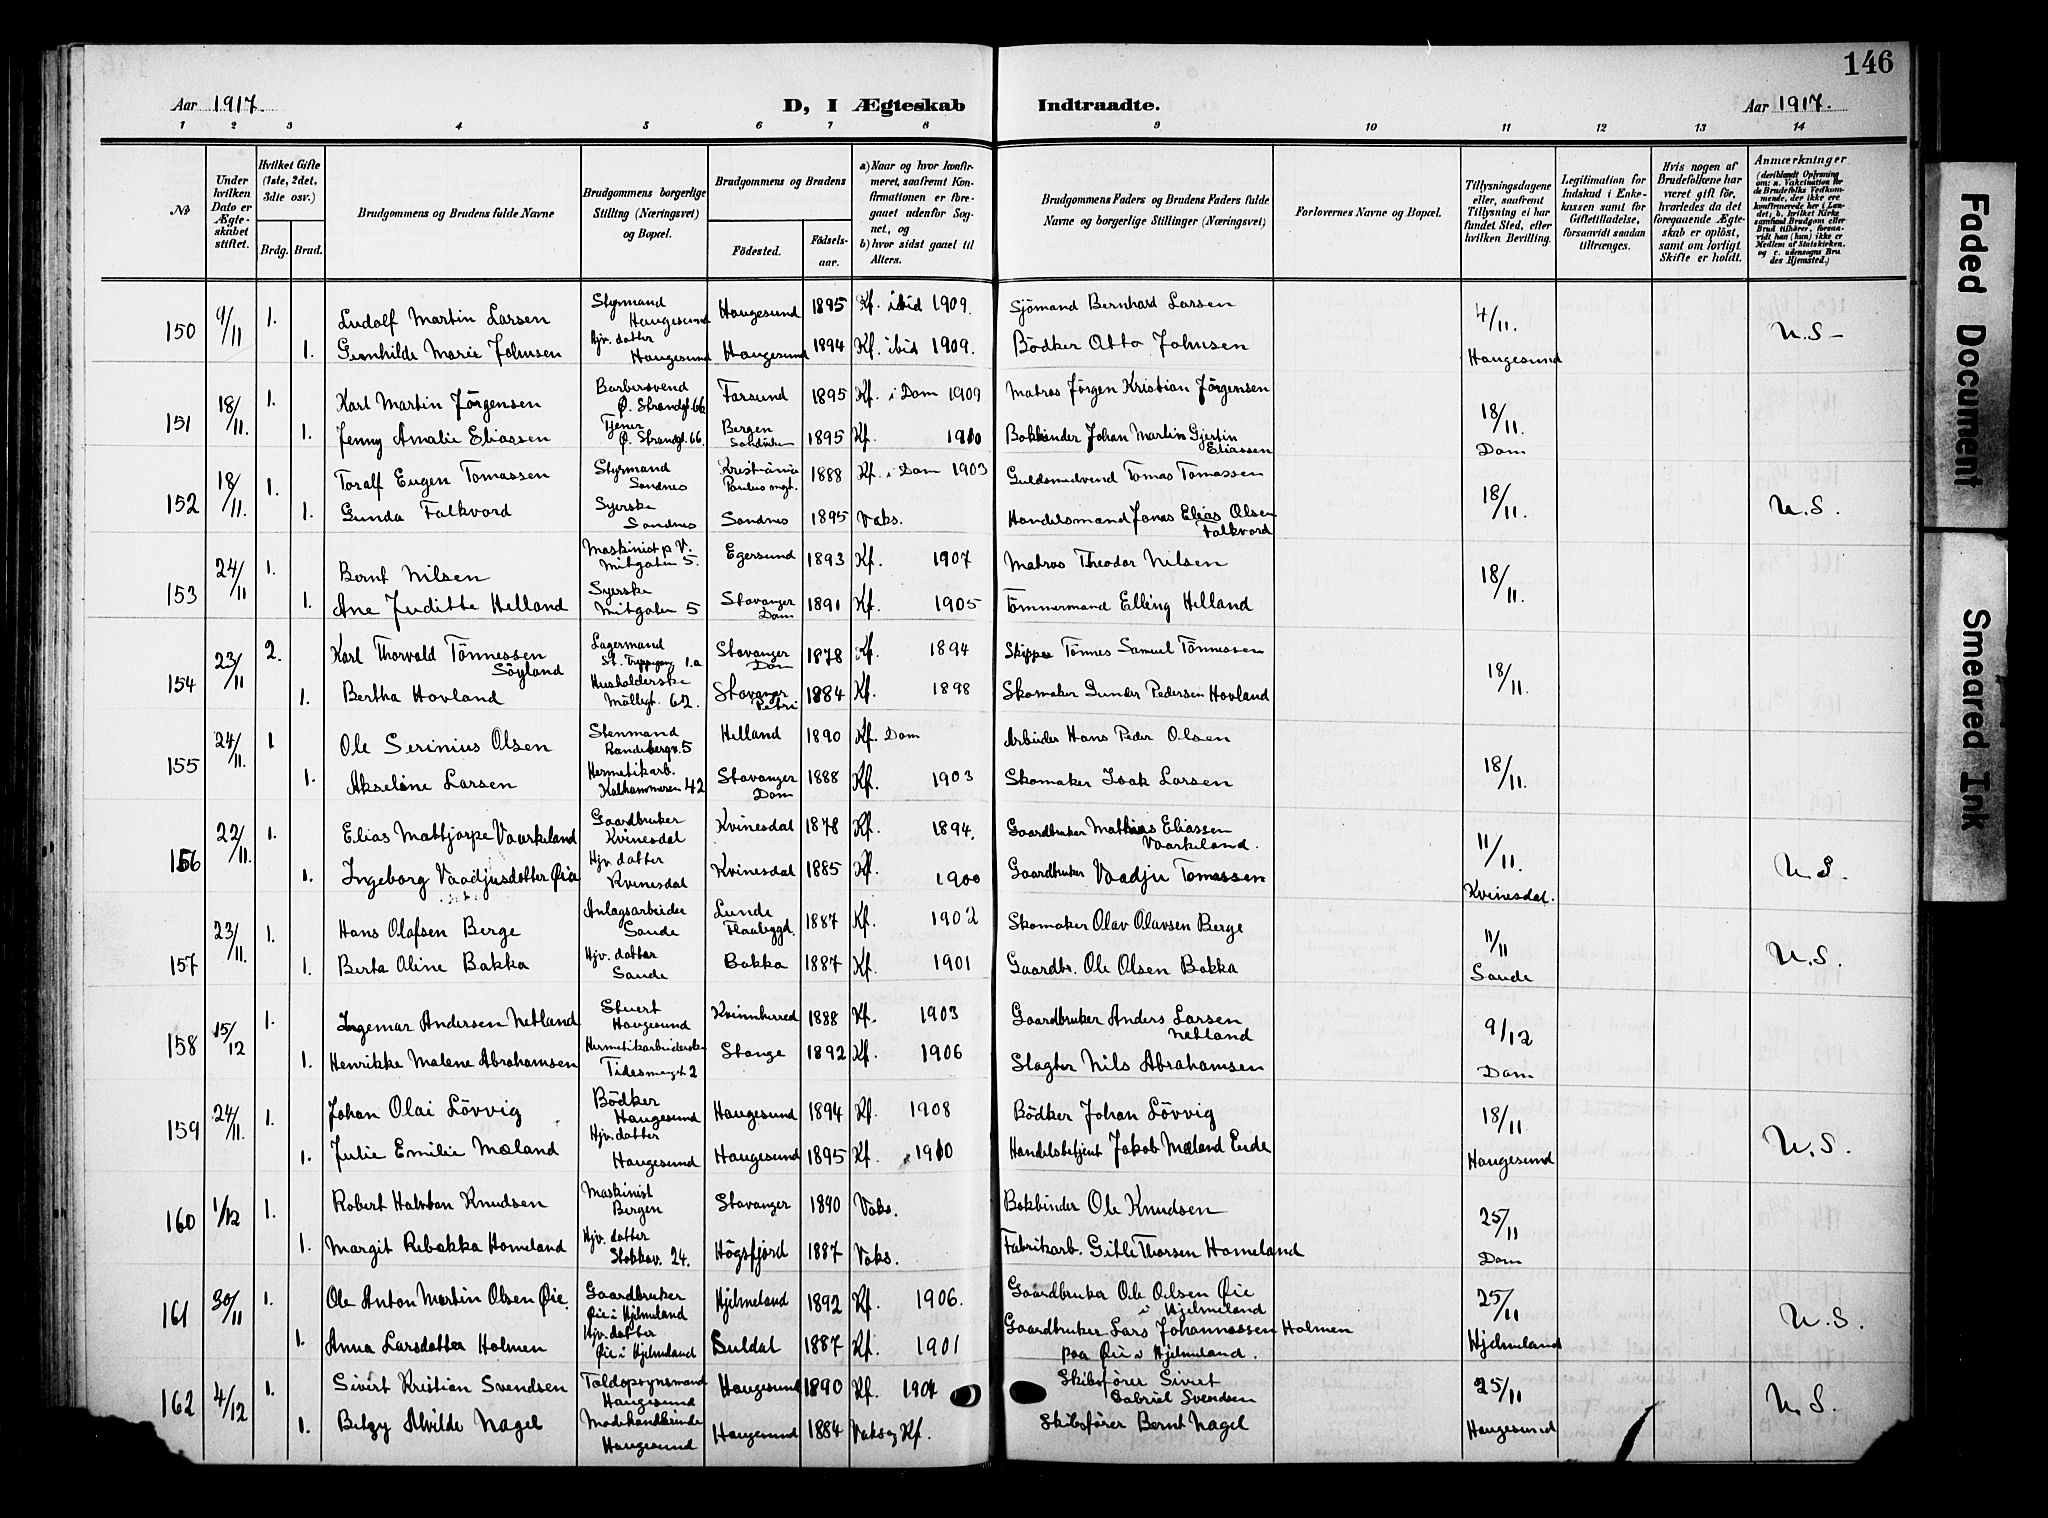 146
Aar 1917. D, I Ægteskab Indtraadte. Aar 1917.
1 2 3 4 5 6 7 8 9 10 11 12 13 14
№
Under hvilken Dato er Ægteskabet stiftet.
Hvilket Gifte (1ste, 2det, 3die osv.)
Brdg. Brud.
Brudgommens og Brudens fulde Navne
Brudgommens borgerlige Stilling (Næringsvei) og Bopæl.
Brudgommens og Brudens
Födested. Födselsaar.
a) Naar og hvor konfirmeret, saafremt Konfirmationen er foregaaet udenfor Sognet, og
b) hvor sidst gaael til Alters.
Brudgommens Faders og Brudens Faders fulde Navne og borgerlige Stillinger (Næringsvei)
Forlovernes Navne og Bopæl.
Tillysningsdagene eller, saafremt Tillysning ei har fundet Sted, efter hvilken Bevilling.
Legitimation for Indskud i Enkekassen samt for Giftetilladelse, forsaavidt saadan tiltrænges.
Hvis nogen af Brudefolkene har været gift för, hvorledes da det foregaaende Ægteskab er oplöst, samt om lovligt Skifte er holdt.
Anmærkninger
(deriblandt Oplysning om: a. Vakcination for de Brudefolks Vedkommende, der ikke ere konfirmerede her i Landet; b. hvilket Kirkesamfund Brudgom eller Brud tilhörer, forsaavidt han (hun) ikke er Medlem af Statskirken, og c. udensogns Brudes Hjemsted.)
150 9/11 1. Ludolf Martin Larsen Styrmand Haugesund Haugesund 1895 Kf. ibid 1909. Sjömand Bernhard Larsen 4/11. U.S-
1. Gunhilde Marie Johnsen Hjv. datter Haugesund Haugesund 1894 Kf. ibid 1909. Bödker Otto Johnsen Haugesund
151 18/11. 1. Karl Martin Jörgensen Barbersvend Ø. Strandgt. 66 Farsund 1895 Kf. i Dom 1909 Matros Jörgen Kristian Jörgensen 18/11.
1. Jenny Amalie Eliassen Tjener Ø. Strandgt. 66. Bergen 1895 Kf. 1910 Bokbinder Johan Martin Gjertin Eliassen Dom
152 18/11. 1. Toralf Eugen Tomassen Styrmand Sandnes Kristiania 1888 Kf. i Dom 1903 Guldsmedsvend Tomas Tomassen 18/11. U.S.
1. Gunda Falkvard Syerske Sandnes Sandnes 1895 Vaks. Handelsmand Jonas Elias Olsen Falkvard
153 24/11 1. Bernt Nilsen Maskinist p V. Mitgaten 5. Egersund 1893 Kf. 1907 Matros Theodor Nilsen 18/11.
1. Ane Juditte Helland Syerske Mitgaten 5 Stavanger Dom 1891 Kf. 1905 Tömmermand Elling Helland
154 23/11 2. Karl Thorvald Tönnessen Söyland Lagermand 1.a Stavanger Dom 1878 Kf. 1894 Skipper Tönnes Samuel Tönnessen 18/11.
1. Bertha Hovland Husholderske Möllegt. 62. Stavanger Petri 1884 Kf. 1898 Skomaker Gunder Pedersen Hovland
155 24/11. 1 Ole Serinius Olsen Stenmand Randebergv. 5 Helland 1890 Kf. Dom Arbeider Hans Peder Olsen 18/11.
1. Akseline Larsen Hermetikarb. Kalhammeren 42 Stavanger Dom 1888 Kf. 1903 Skomaker Isak Larsen
156 22/11. 1. Elias Mattjorpe Vaarkeland Gaardbruker Kvinesdal Kvinesdal 1878 Kf. 1894. Gaardbruker Mathias Eliassen Vaarkeland. 11/11. U.S.
1. Ingeborg Vaadjusdatter Øie Hjv. datter Kvinesdal Kvinesdal 1885 Kf. 1900 Gaardbruker Vaadju Tomassen Kvinesdal.
157 23/11. 1. Hans Olafsen Berge Anlagsarbeider Saude Lunde Flaabygd. 1887 Kf. 1902 Skomaker Olav Olavsen Berge 11/11 U.S.
1. Berta Oline Bakka Hjv. datter Saude Bakka 1887 Kf. 1901 Gaardbr. Ole Olsen Bakka Saude
158 15/12 1. Ingemar Andersen Netland Stuert Haugesund Kvinnherred 1888 Kf. 1903 Gaardbruker Anders Larsen Netland 9/12
1. Henrikke Malene Abrahamsen Hermetikarbeiderske Tidesmgt 2 Stange 1892 Kf. 1906 Slagter Nils Abrahamsen Dom
159 24/11. 1. Johan Olai Lövvig Bödker Haugesund Haugesund 1894 Kf. 1908 Bödker Johan Lövvig 18/11 U.S.
1. Julie Emilie Mæland Hjv. datter Haugesund Haugesund 1895 Kf. 1910 Handelsbetjent Jakob Mæland Eide Haugesund
160 1/12 1. Robert Halvdan Knudsen Maskinist Bergen Stavanger 1890 Vaks. Bokbinder Ole Knudsen 25/11
1. Margit Rebakka Homeland Hjv. datter Stokkav. 24. Högsfjord 1887 Vaks. Fabrikarb. Gitle Thorsen Homeland Dom
161 30/11 1. Ole Anton Martin Olsen Øie. Gaardbruker Øie i Hjelmeland Hjelmeland 1892 Kf. 1906. Gaardbruker Ole Olsen Øie i Hjelmeland 25/11 U.S.
1. Anna Larsdatter Holmen Hjv. datter Øie i Hjelmeland Suldal 1887 Kf. 1901 Gaardbruker Lars Johannessen Holmen paa Øie i Hjelmeland. Hjelmeland
162 4/12 1. Sivert Kristian Svendsen Toldopsynsmand Haugesund Haugesund 1890 Kf. 1904 Skibsförer Sivert Gabriel Svendsen 25/11 U.S.
1. Betzy Alvilde Nagel Modehandlerinde Haugesund Haugesund 1884 Vaks og Kf. Skibsförer Bernt Nagel Haugesund
Faded Document
Smeared Ink